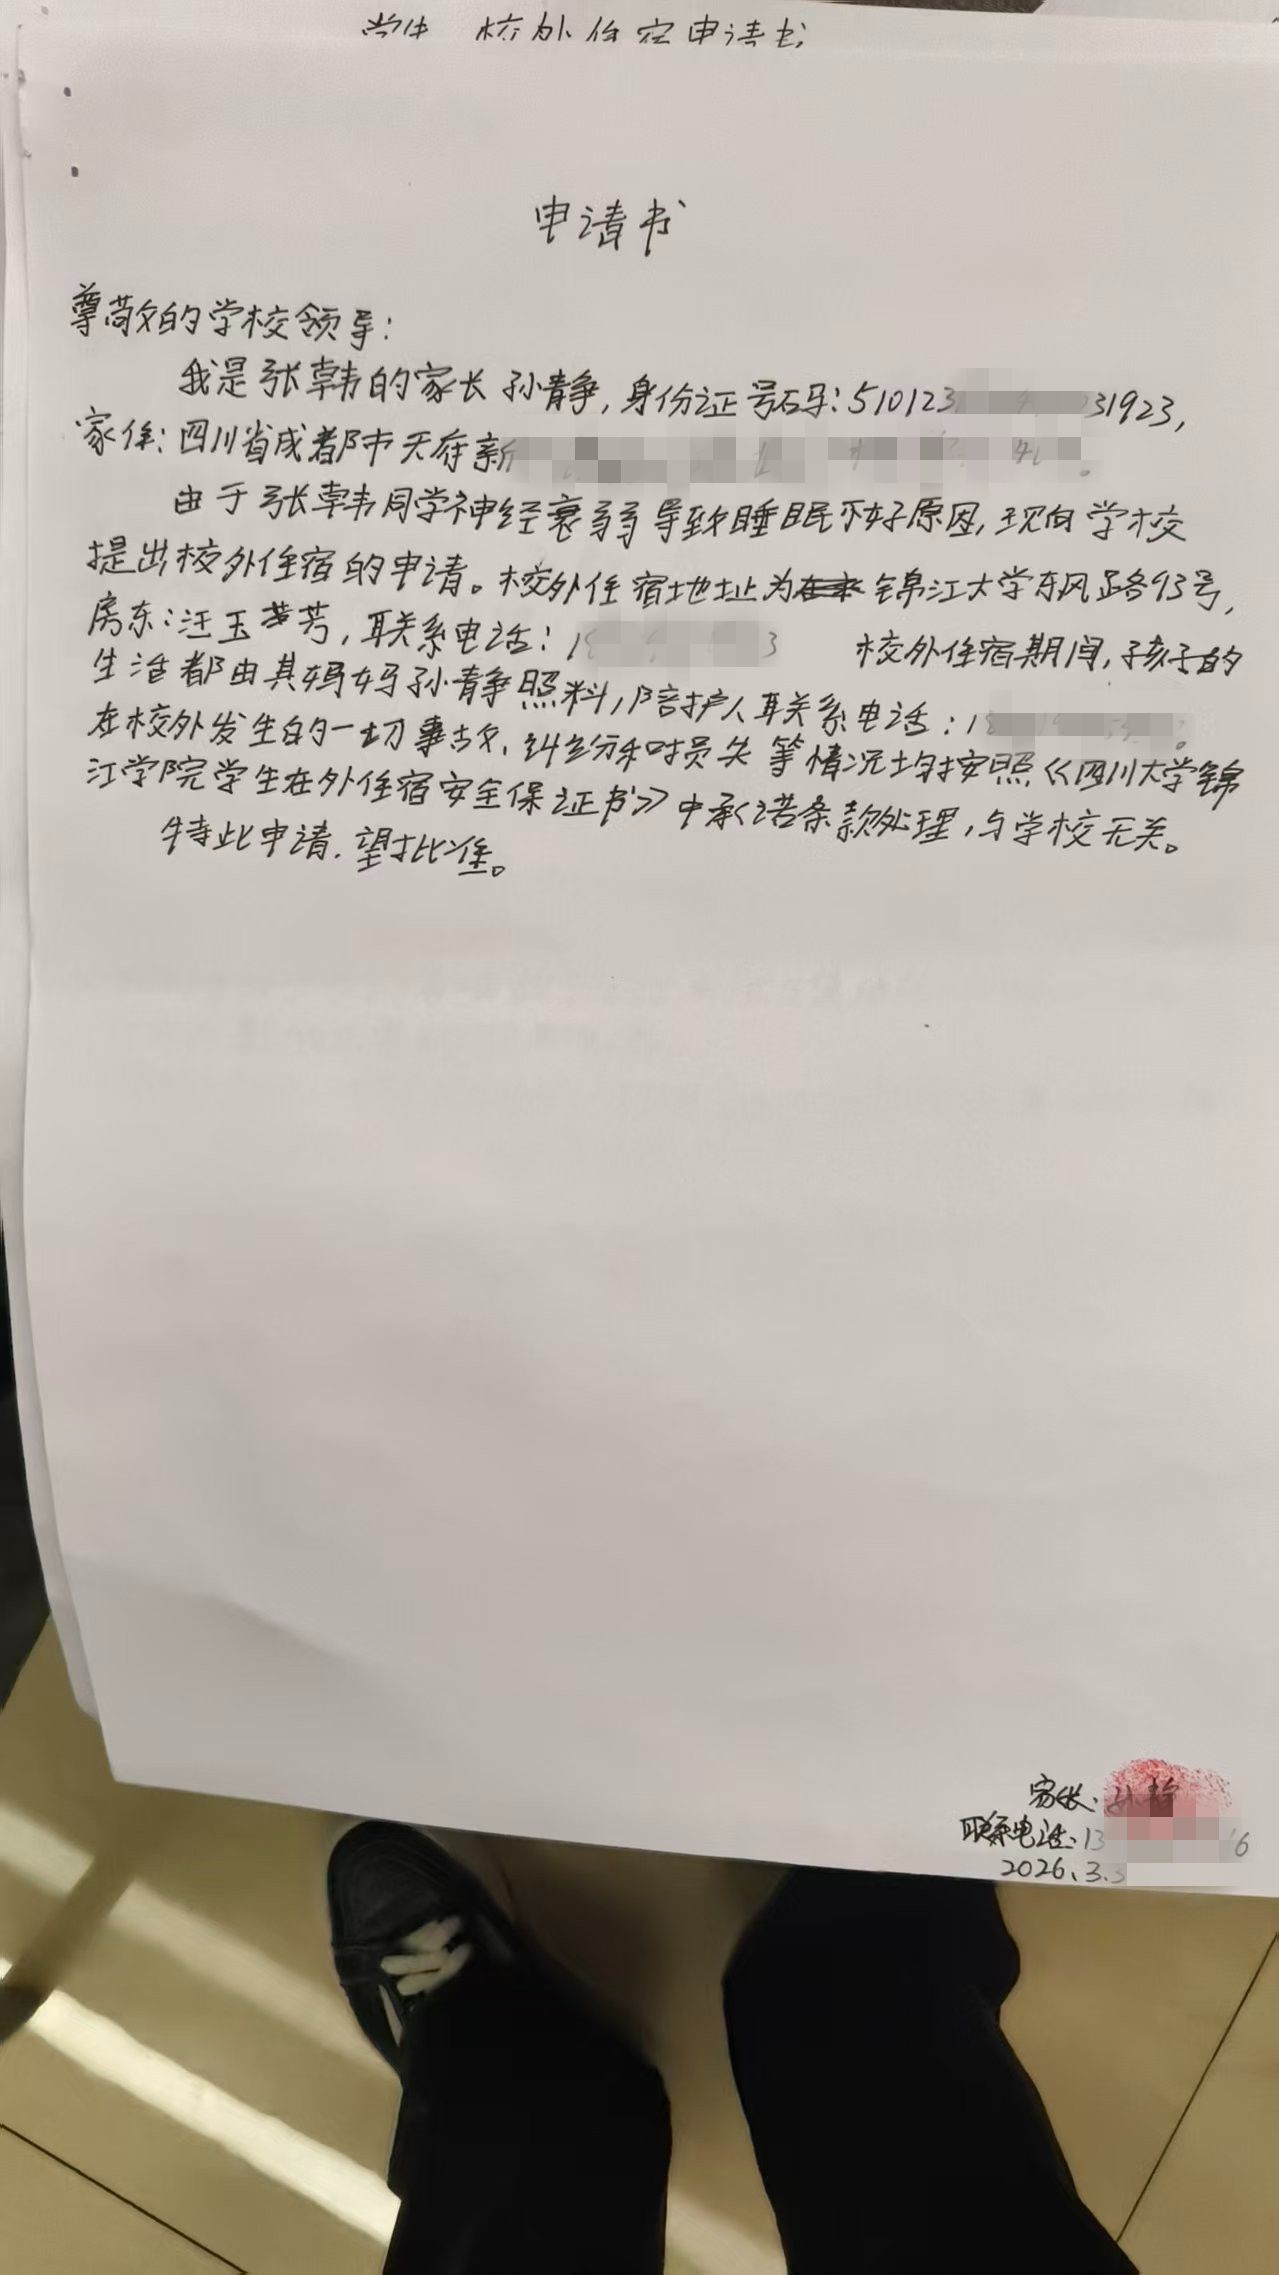 学生 校外住宿申请书
申请书
尊敬的学校领导：
我是张韩的家长孙青争，身份证号码：510123 31923，
家住：四川省成都市天府新
由于张韩同学神经衰弱导致睡眠不好原因，现向学校
提出校外住宿的申请。校外住宿地址为 锦江大学东风路93号，
房东：汪玉芳，联系电话：1 3 校外住宿期间，孩子的
生活都由其妈妈孙青争照料，陪护人联系电话：1
在校外发生的一切事故、纠纷和损失等情况均按照《四川大学锦
江学院学生在外住宿安全保证书》中承诺条款处理，与学校无关。
特此申请，望批准。
家长：
联系电话：13 6
2026.3.3